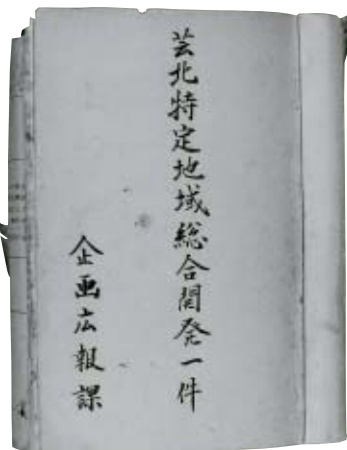 芸北特定地域総合開発一件
企画広報課